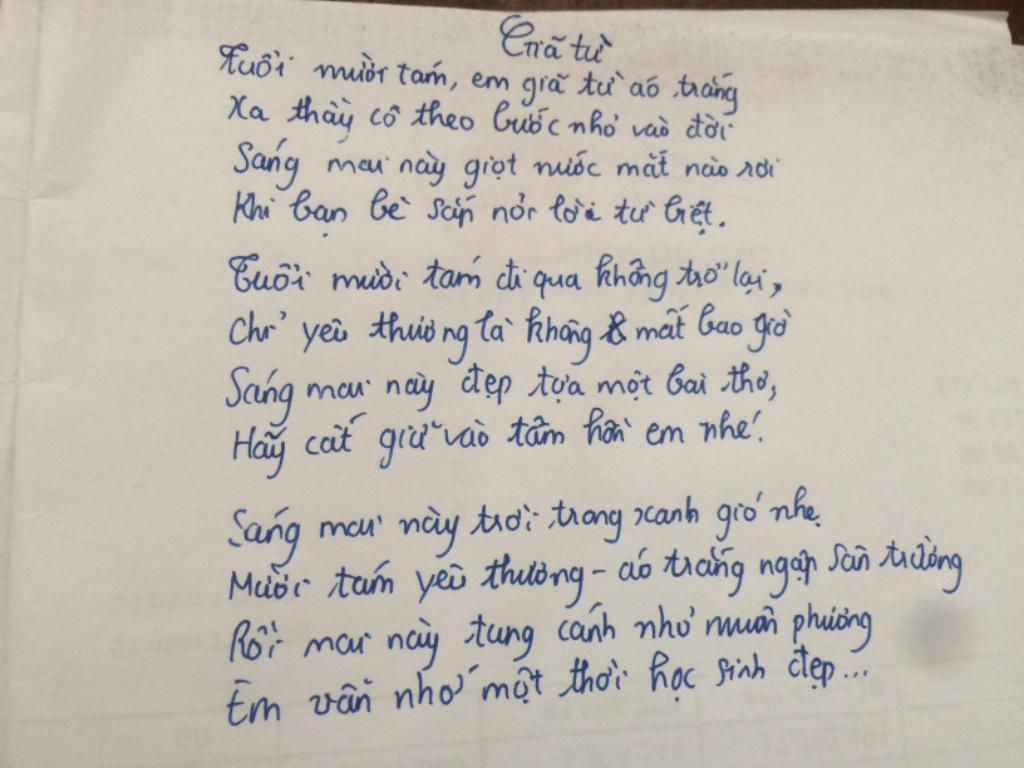 Giã từ
Tuổi mười tám, em giã từ áo trắng
Xa thầy cô theo bước nhỏ vào đời
Sáng mai này giọt nước mắt nào rơi
Khi bạn bè sắp nói lời từ biệt.
Tuổi mười tám đi qua không trở lại,
Chỉ yêu thương là không mất bao giờ
Sáng mai này đẹp tựa một bài thơ,
Hãy cất giữ vào tâm hồn em nhé!
Sáng mai này trời trong xanh gió nhẹ
Mười tám yêu thương - áo trắng ngập sân trường
Rồi mai này tung cánh nhỏ muôn phương
Em vẫn nhớ một thời học sinh đẹp...